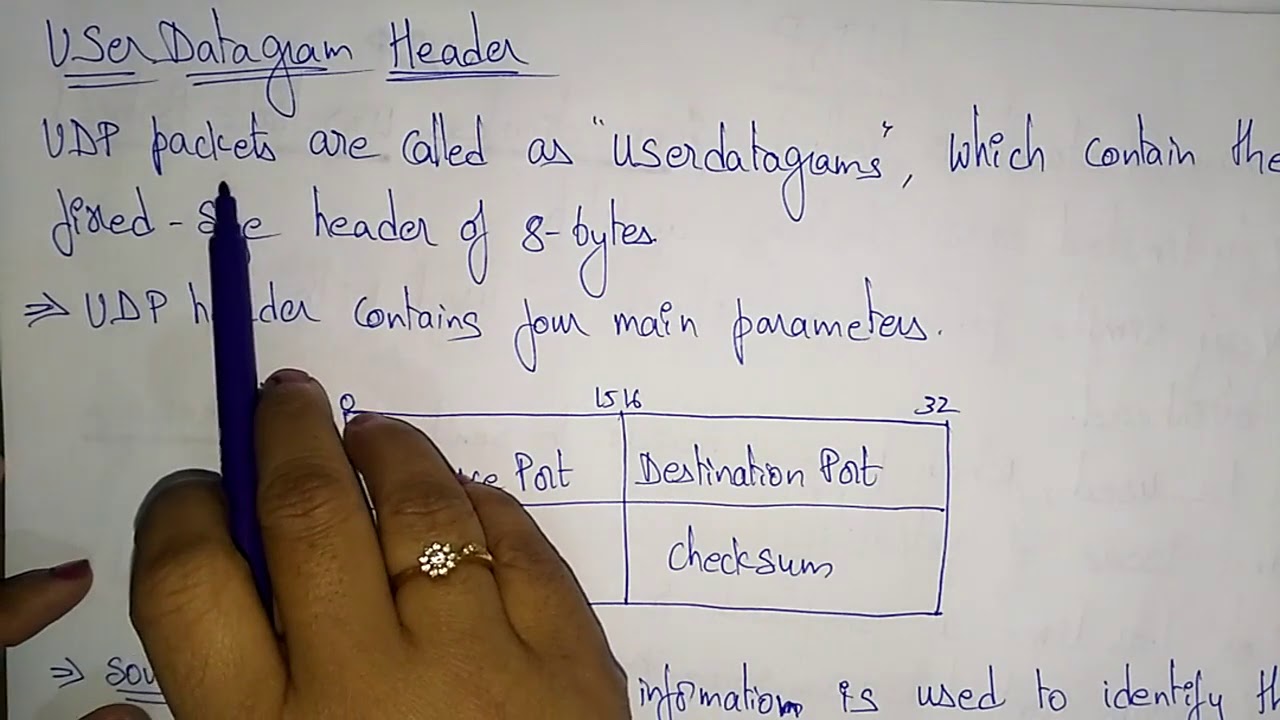 User Datagram Header
UDP packets are called as "userdatagrams", which contain the
fixed - header of 8-bytes.
⇒ UDP contains four main parameters.
0 15 16 32
Port Destination Port
checksum
⇒ information is used to identify